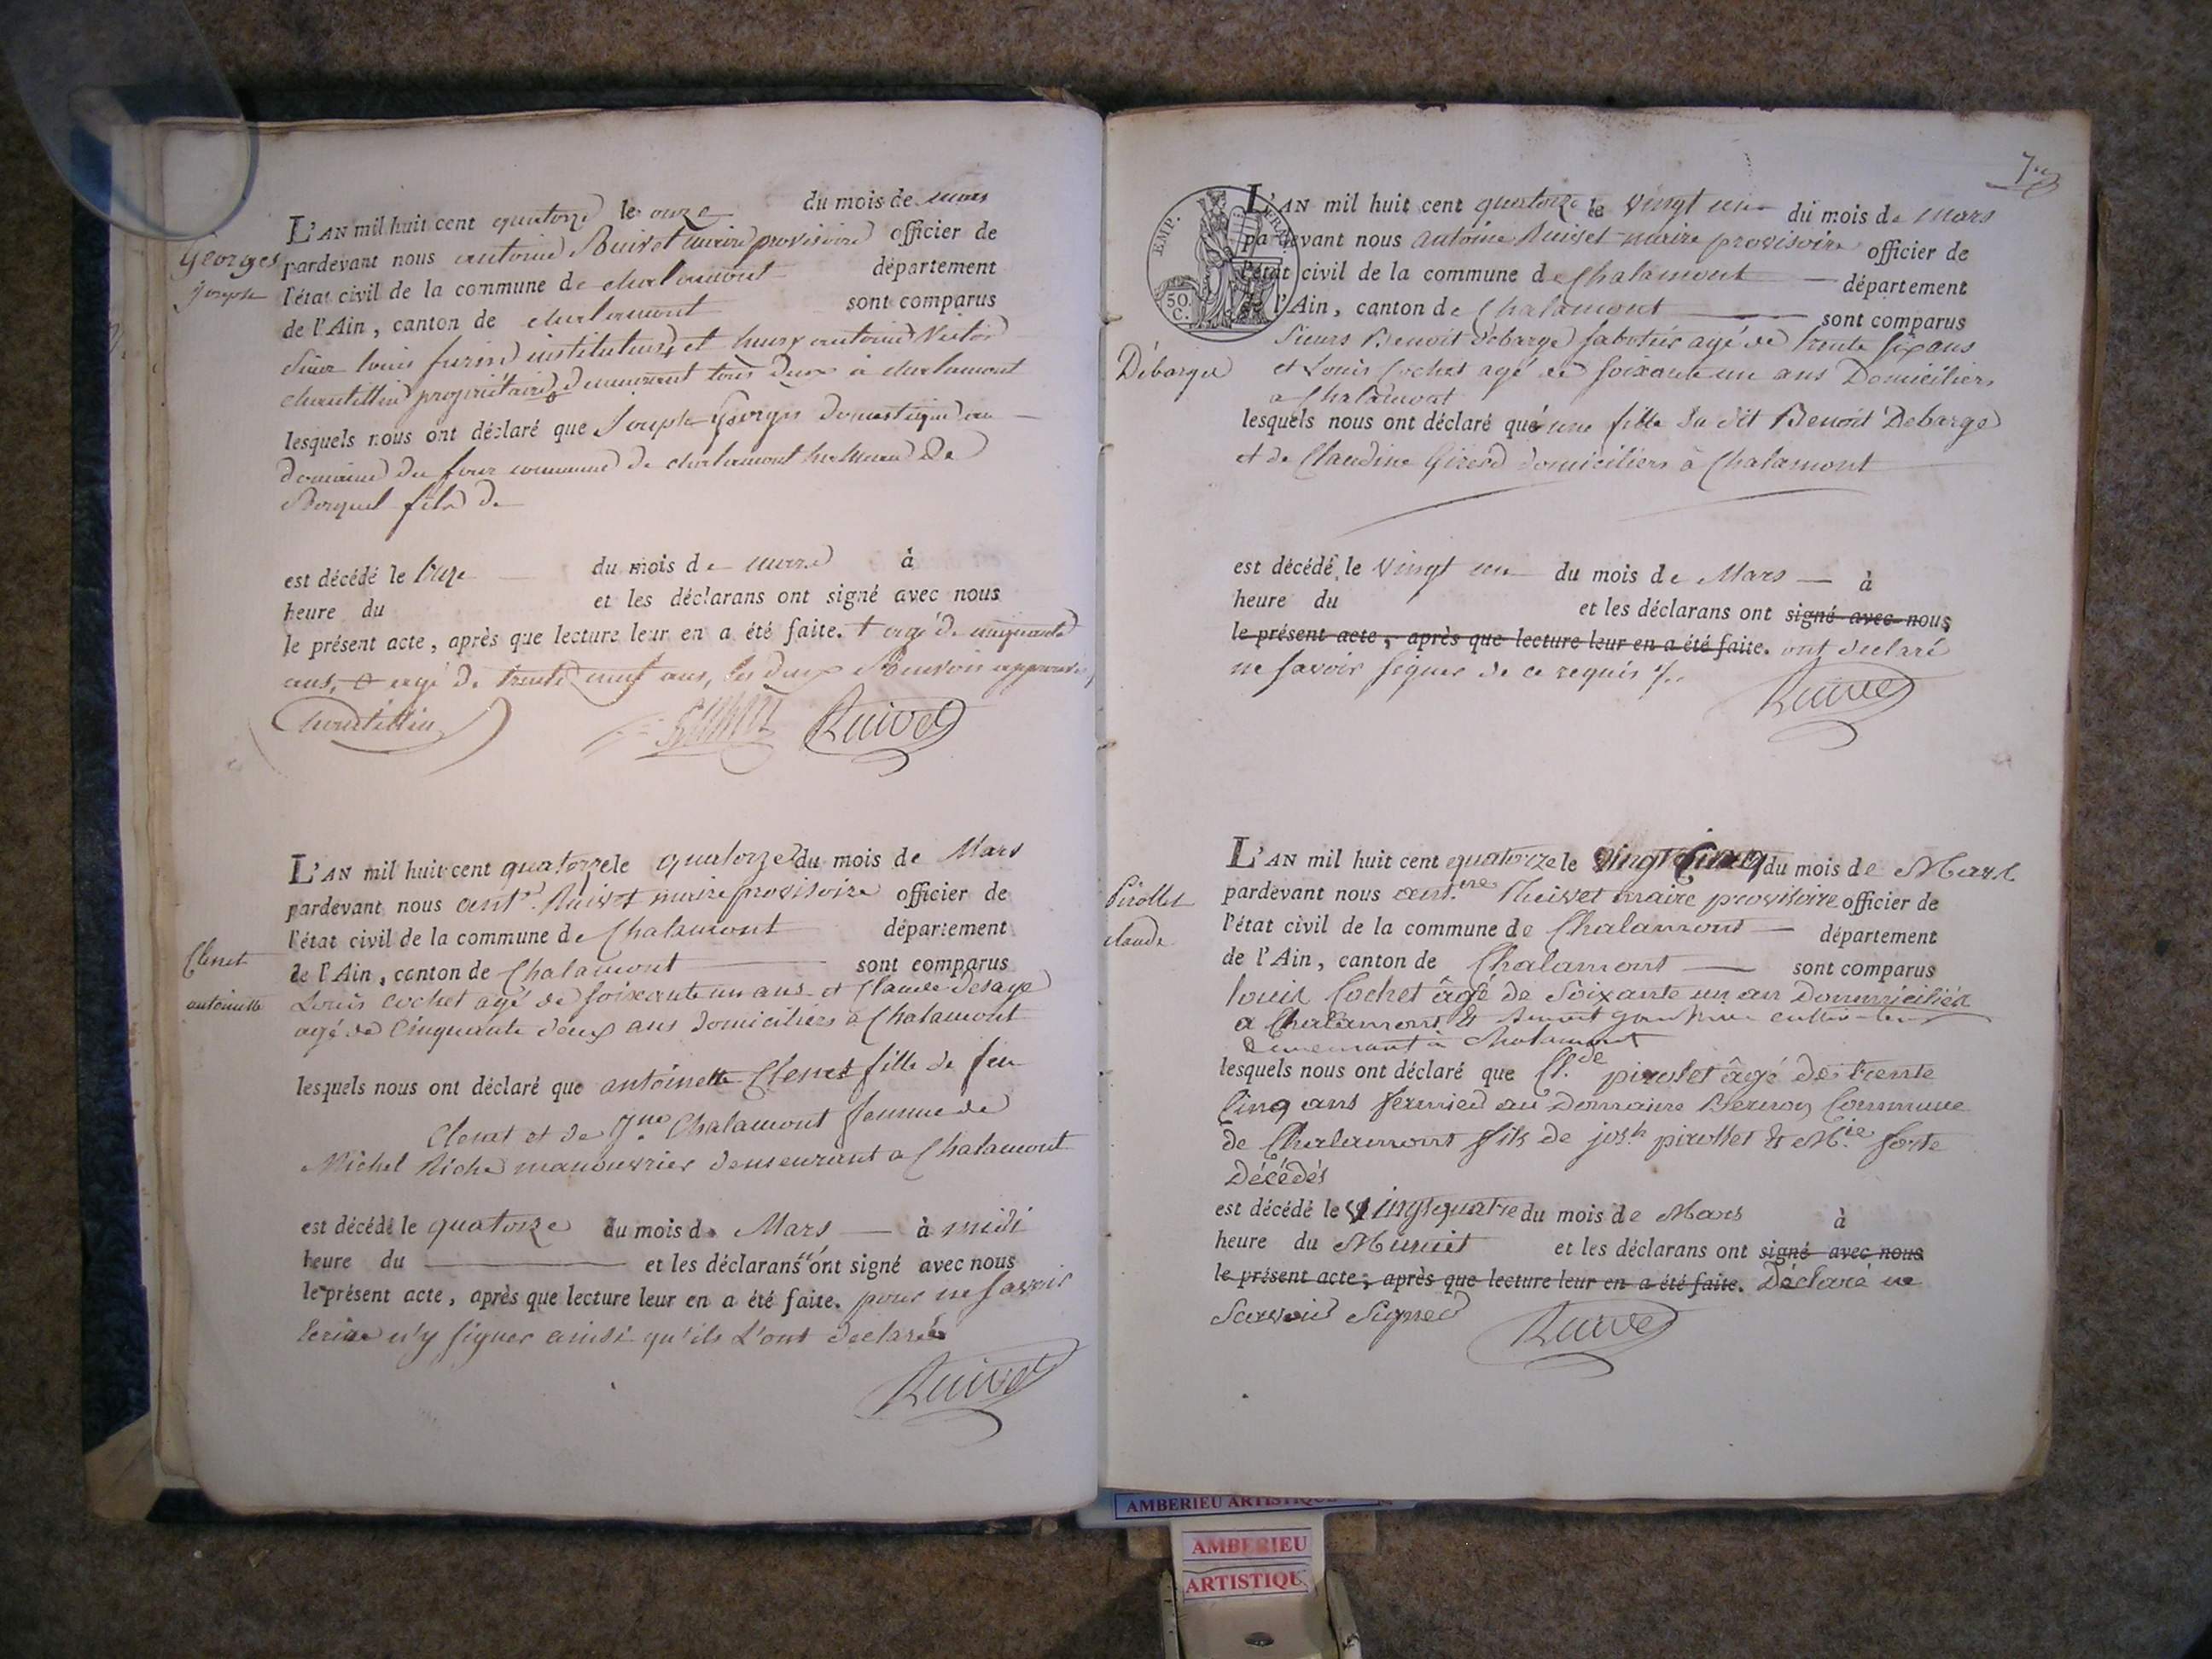 Georges
Joseph
L'AN mil huit cent quatorze le onze du mois de mars
pardevant nous antoine Ruivet maire provisoire officier de
l'état civil de la commune de chalamont département
de l'Ain, canton de chalamont sont comparus
Sieur louis instituteur + et antoine Victor
chantellin propriétaire demeurant tous deux à chalamont
lesquels nous ont déclaré que Joseph Georges domestique au
domaine du four commune de chalamont de
fils de
est décédé le onze du mois de mars à
heure du et les déclarans ont signé avec nous
le présent acte, après que lecture leur en a été faite. + agé de cinquante
ans, agé de trente neuf ans, les deux Renvois approuvés
Chantellin Ruivet
Clenet
antoinette
L'AN mil huit cent quatorze le quatorze du mois de Mars
pardevant nous antne. Ruivet maire provisoire officier de
l'état civil de la commune de Chalamont département
de l'Ain, canton de Chalamont sont comparus
Louis Cochet agé de soixante un ans et Claude Desage
agé de Cinquante deux ans domiciliers à Chalamont
lesquels nous ont déclaré que antoinette Clenet fille de feu
Clenet et de Jne Chalamont femme de
Michel Riche manouvrier demeurant a Chalamont
est décédé le quatorze du mois de Mars à midi
heure du et les déclarans n' ont signé avec nous
le présent acte, après que lecture leur en a été faite. pour ne savoir
Ecrire n'y signer ainsi qu'ils L'ont declaré
Ruivet
7
EMP.
50
C.
Debarge
L'AN mil huit cent quatorze le vingt un du mois de mars
pardevant nous antoine Ruivet maire provisoire officier de
l'état civil de la commune de Chalamont département
de l'Ain, canton de Chalamont sont comparus
Sieurs Benoit Debarge sabotier agé de trente six ans
et Louis Cochet agé de soixante un ans Domiciliers
a Chalamont
lesquels nous ont déclaré que une fille du dit Benoit Debarge
et de Claudine Girerd domiciliers à Chalamont
est décédé le vingt un du mois de Mars à
heure du et les déclarans ont signé avec nous
le présent acte, après que lecture leur en a été faite. ont declaré
ne savoir signer de ce requis
Ruivet
Pirollet
claude
L'AN mil huit cent quatorze le vingt Cinq du mois de Mars
pardevant nous antne Ruivet maire provisoire officier de
l'état civil de la commune de Chalamont département
de l'Ain, canton de Chalamont sont comparus
louis Cochet âgé de Soixante un an Dommicilié
a Chalamont &
demeurant à Chalamont
lesquels nous ont déclaré que Cl.de pirolet âgé de trente
Cinq ans fermier au Domaine Commune
de Chalamont fils de jos.h pirollet & M.ie forte
Décédés
est décédé le vingt quatre du mois de Mars à
heure du Minuit et les déclarans ont signé avec nous
le présent acte, après que lecture leur en a été faite. Déclaré ne
Savoir Signer
Ruivet
AMBERIEU ARTISTIQUE
AMBERIEU
ARTISTIQU